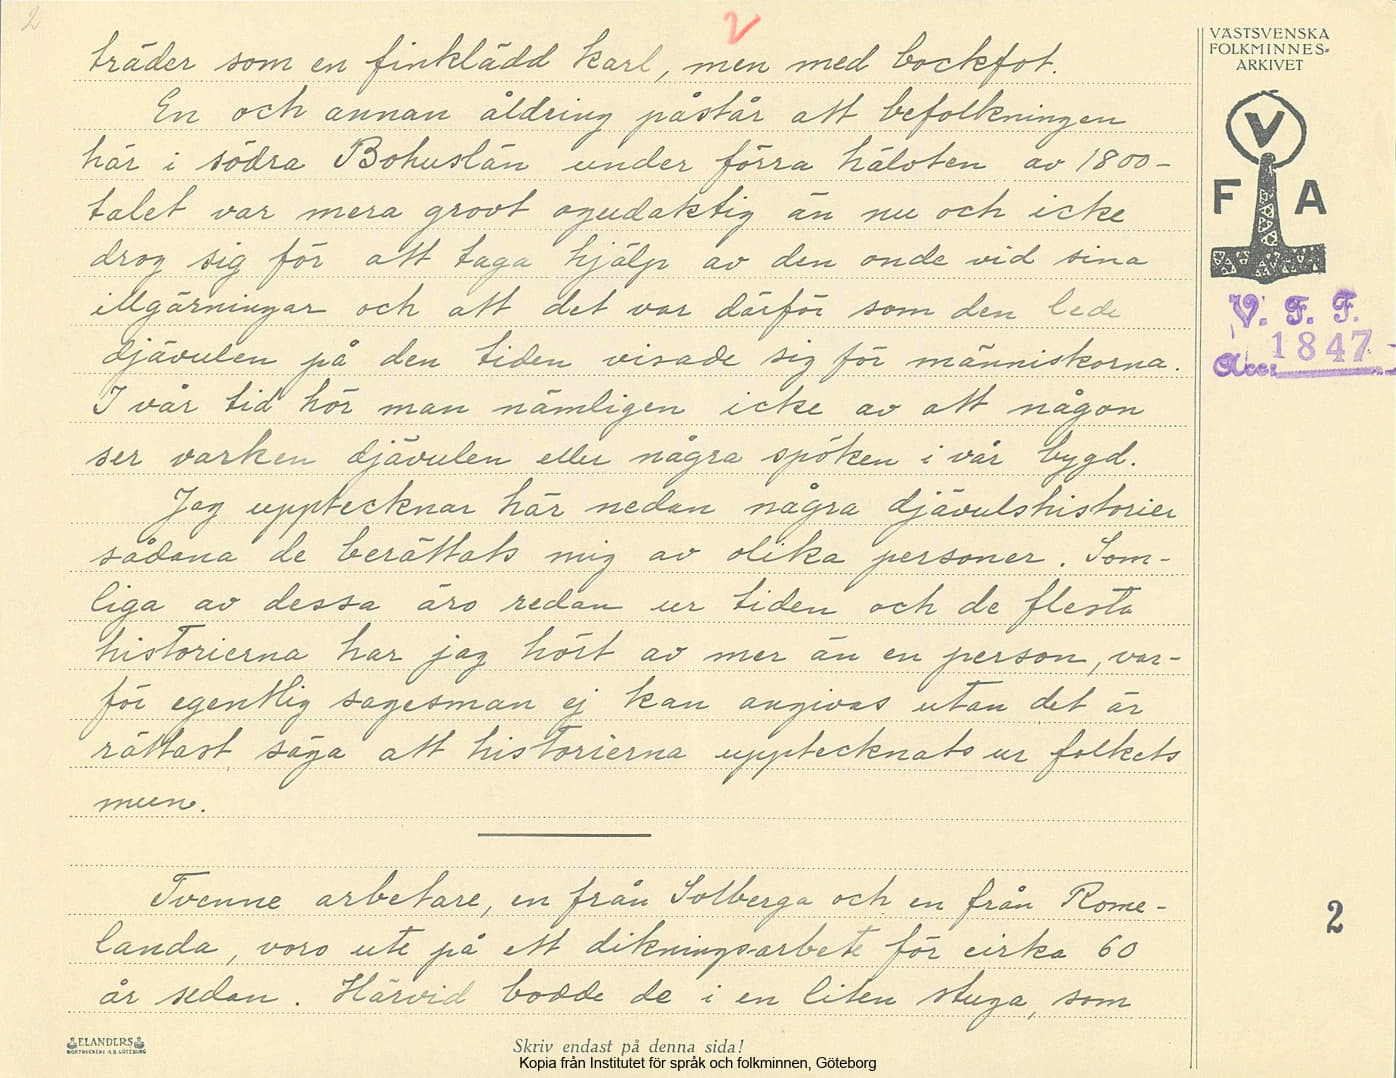 2
2
träder som en finklädd karl, men med bockfot.
En och annan åldring påstår att befolkningen
här i södra Bohuslän under förra hälvten av 1800-
talet var mera grovt ogudaktig än nu och icke
drog sig för att taga hjälp av den onde vid sina
illgärningar och att det var därför som den lede
djävulen på den tiden visade sig för människorna.
I vår tid hör man nämligen icke av att någon
ser varken djävulen eller några spöken i vår bygd.
Jag upptecknar här nedan några djävulshistorier
sådana de berättats mig av olika personer. Som-
liga av dessa äro redan ur tiden och de flesta
historierna har jag hört av mer än en person, var-
för egentlig sagesman ej kan angivas utan det är
rättast säga att historierna upptecknats ur folkets
mun.
Tvenne arbetare, en från Solberga och en från Rome-
landa, voro ute på ett dikningsarbete för cirka 60
år sedan. Härvid bodde de i en liten stuga, som
VÄSTSVENSKA
FOLKMINNES-
ARKIVET
V
F A
V. F. F.
Acc: 1847
2
ELANDERS
BOKTRYCKERI A.B. GÖTEBORG
Skriv endast på denna sida!
Kopia från Institutet för språk och folkminnen, Göteborg